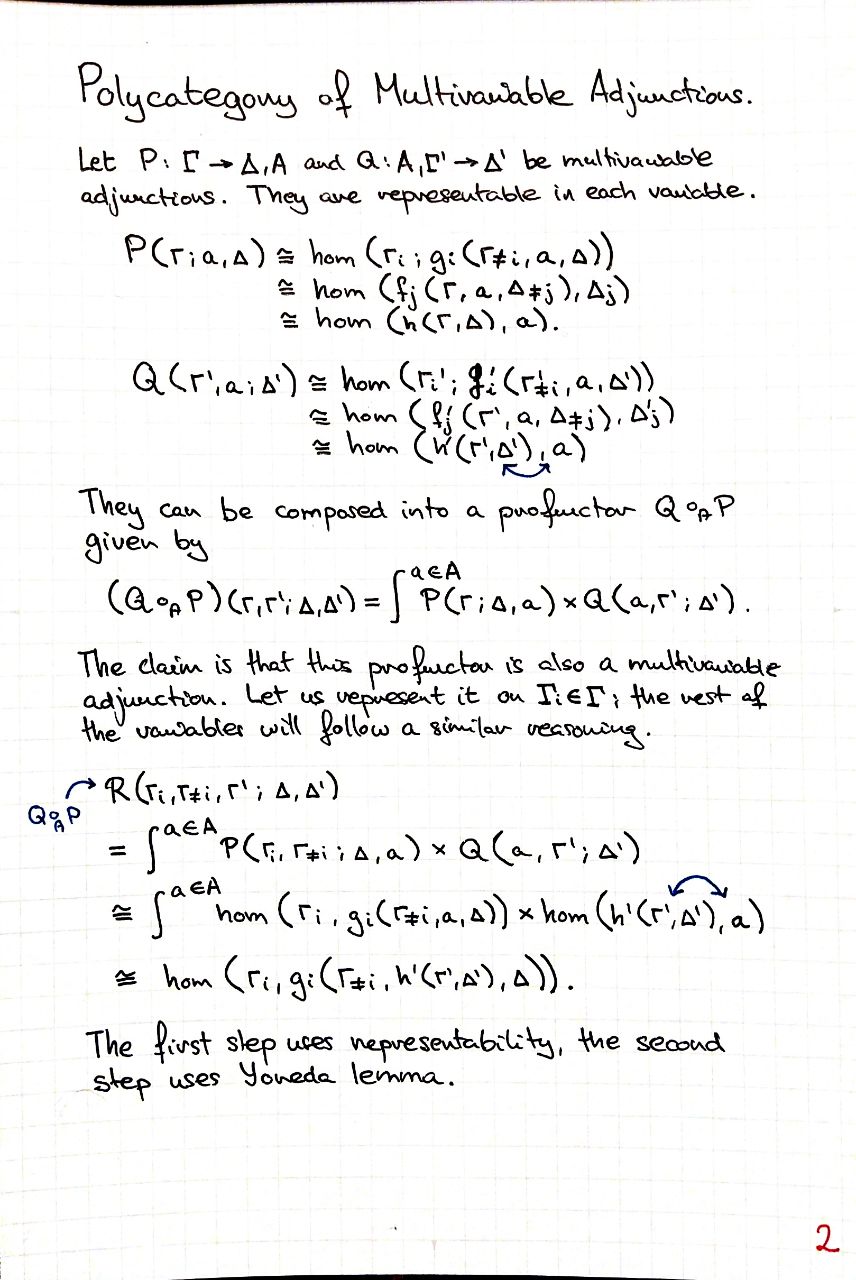 Polycategory of Multivariable Adjunctions.
Let P: Γ → Δ, A and Q: A, Γ' → Δ' be multivariable
adjunctions. They are representable in each variable.
P(Γ; a, Δ) ≅ hom (Γi ; gi(Γ≠i, a, Δ))
≅ hom (fj (Γ, a, Δ≠j), Δj)
≅ hom (h(Γ, Δ), a).
Q(Γ', a; Δ') ≅ hom (Γi' ; gi'(Γ'≠i, a, Δ'))
≅ hom (fj' (Γ', a, Δ≠j), Δ'j)
≅ hom (h'(Γ', Δ'), a)
They can be composed into a profunctor Q∘A P
given by
(Q∘A P)(Γ, Γ'; Δ, Δ') = ∫^{a∈A} P(Γ; Δ, a) × Q(a, Γ'; Δ').
The claim is that this profunctor is also a multivariable
adjunction. Let us represent it on Γi ∈ Γ; the rest of
the variables will follow a similar reasoning.
Q∘A P R(Γi, Γ≠i, Γ'; Δ, Δ')
= ∫^{a∈A} P(Γi, Γ≠i; Δ, a) × Q(a, Γ'; Δ')
≅ ∫^{a∈A} hom (Γi, gi(Γ≠i, a, Δ)) × hom (h'(Γ', Δ'), a)
≅ hom (Γi, gi(Γ≠i, h'(Γ', Δ'), Δ)).
The first step uses representability, the second
step uses Yoneda lemma.
2